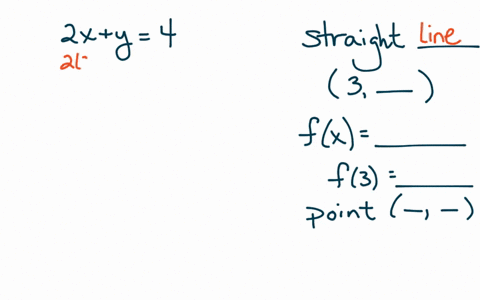 2x+y=4
2(
straight line
(3, __)
f(x)=____
f(3)=____
point (_, _)